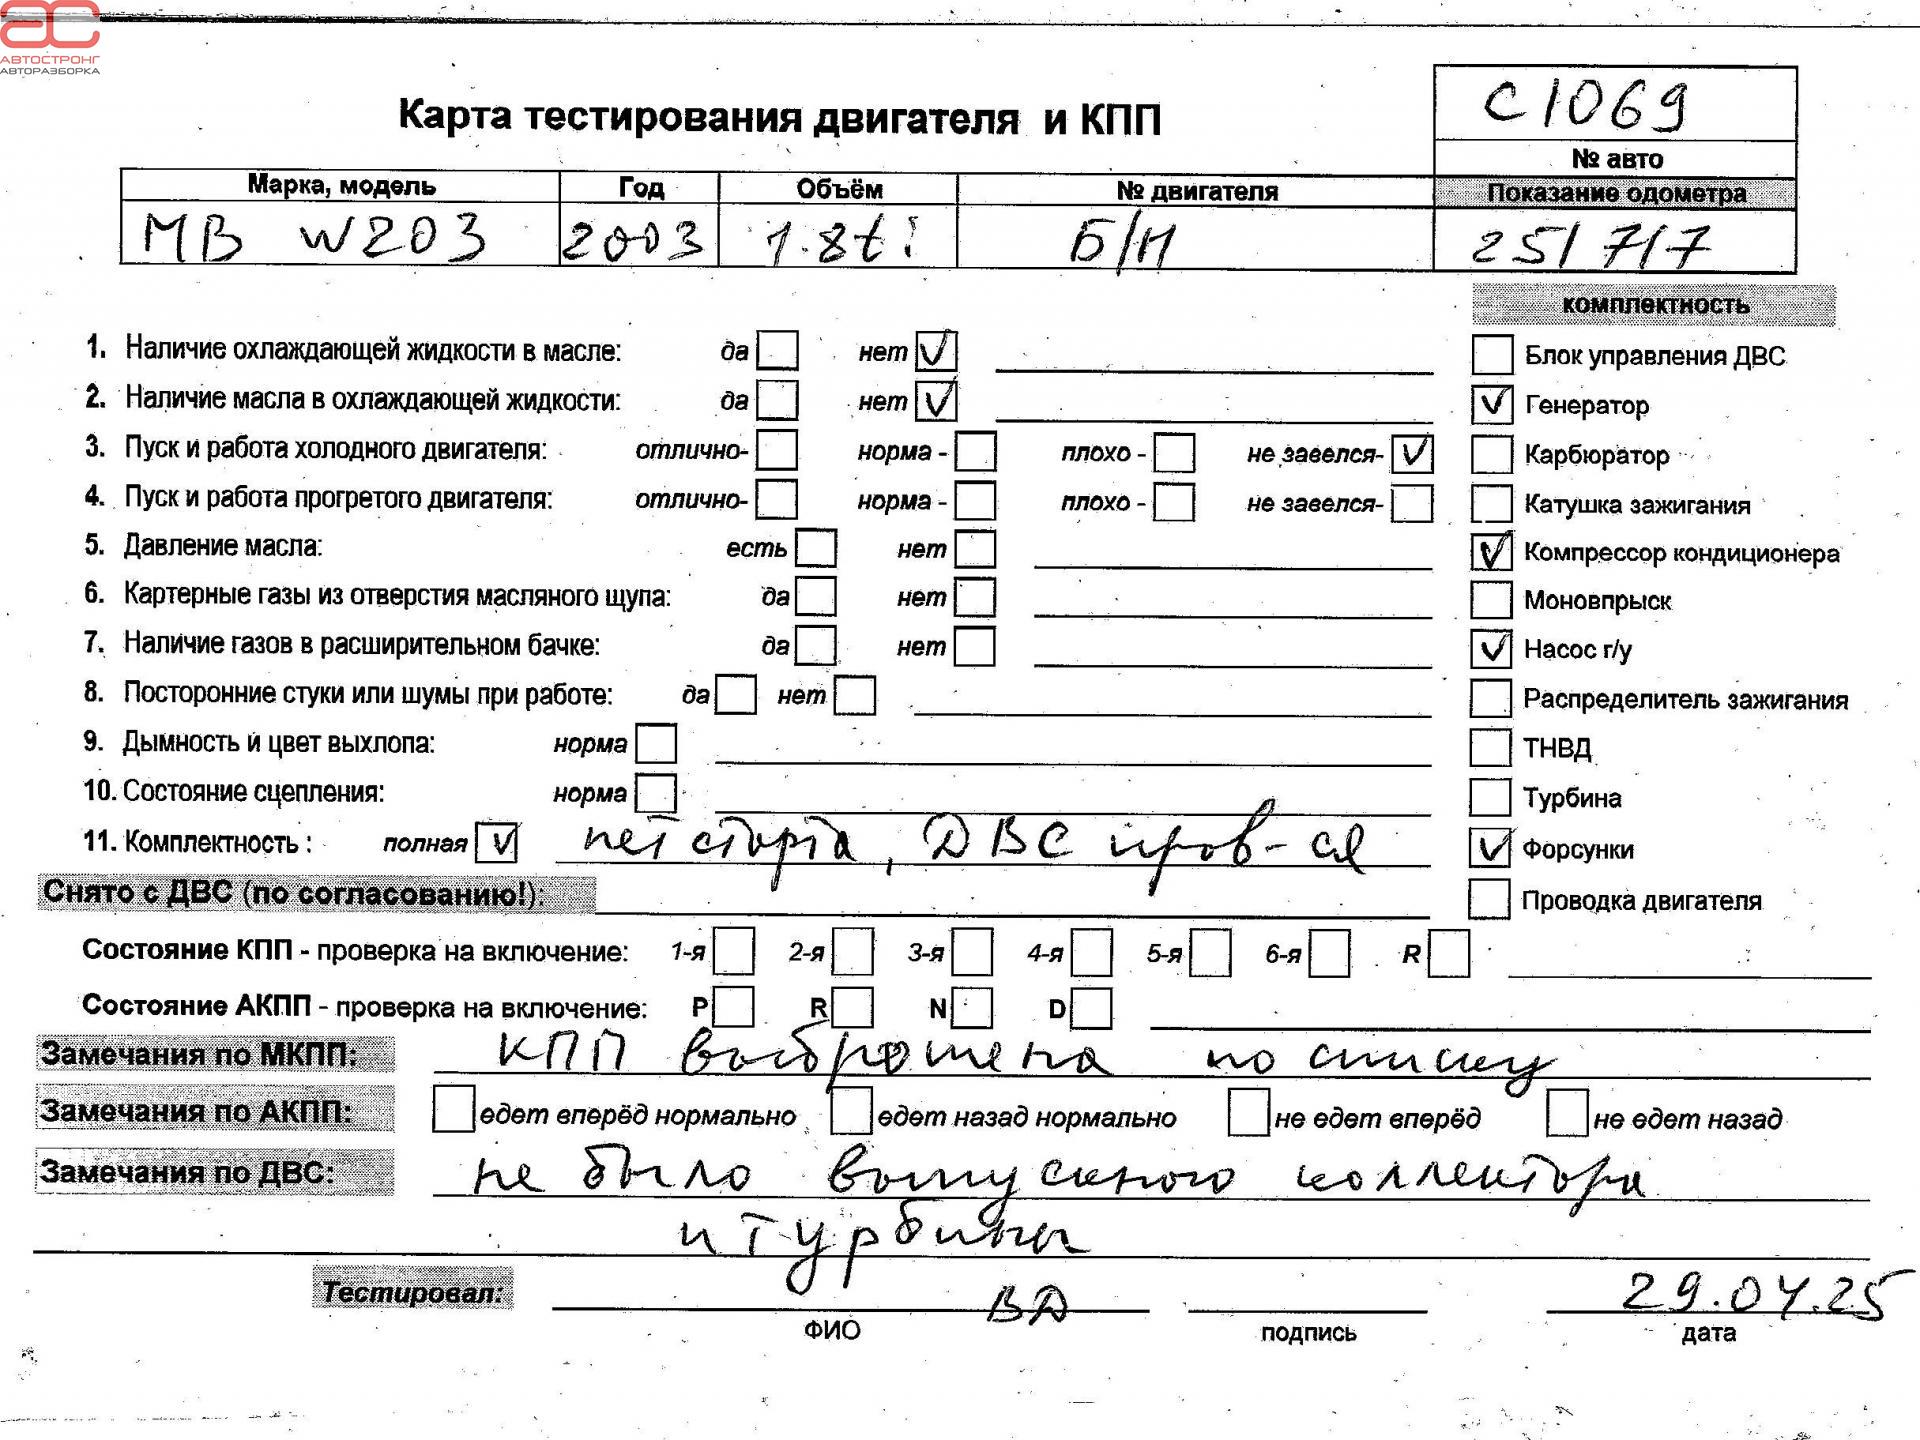 ас
АВТОСТРОНГ
АВТОРАЗБОРКА
С1069
Карта тестирования двигателя и КПП
№ авто
Марка, модель Год Объём № двигателя Показание одометра
МВ W203 2003 1.8ti Б/Н 251717
комплектность
1. Наличие охлаждающей жидкости в масле: да нет Блок управления ДВС
2. Наличие масла в охлаждающей жидкости: да нет Генератор
3. Пуск и работа холодного двигателя: отлично- норма - плохо - не завелся- Карбюратор
4. Пуск и работа прогретого двигателя: отлично- норма - плохо - не завелся- Катушка зажигания
5. Давление масла: есть нет Компрессор кондиционера
6. Картерные газы из отверстия масляного щупа: да нет Моновпрыск
7. Наличие газов в расширительном бачке: да нет Насос г/у
8. Посторонние стуки или шумы при работе: да нет Распределитель зажигания
9. Дымность и цвет выхлопа: норма ТНВД
10. Состояние сцепления: норма Турбина
11. Комплектность : полная нет старта, ДВС пров-ся Форсунки
Снято с ДВС (по согласованию!): Проводка двигателя
Состояние КПП - проверка на включение: 1-я 2-я 3-я 4-я 5-я 6-я R
Состояние АКПП - проверка на включение: P R N D
Замечания по МКПП: КПП выброшена по списку
Замечания по АКПП: едет вперёд нормально едет назад нормально не едет вперёд не едет назад
Замечания по ДВС: не было выпускного коллектора
и турбины
Тестировал: ВД 29.04.25
ФИО подпись дата